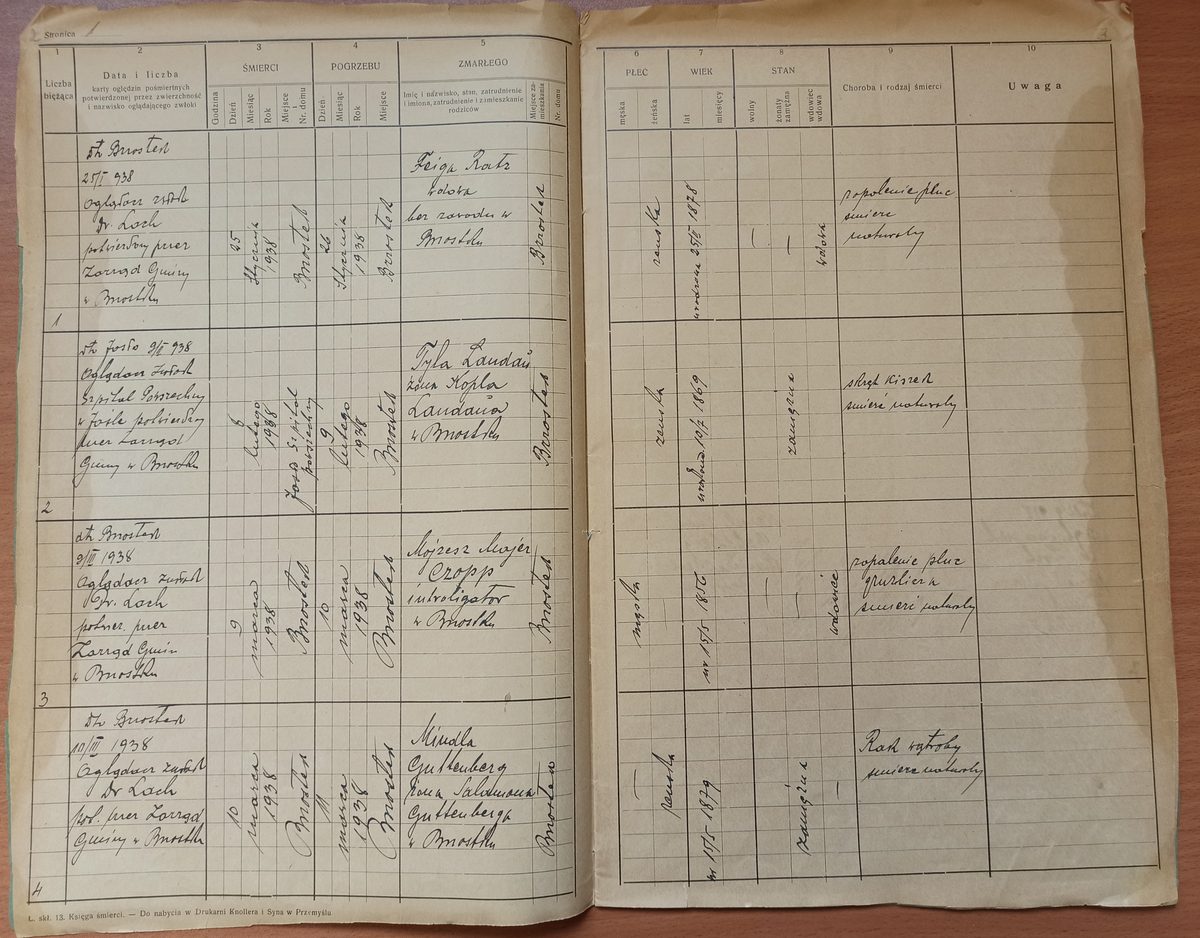 Stronica 1
1
2
3
4
5
Liczba bieżąca
Data i liczba
karty oględzin pośmiertnych
potwierdzonej przez zwierzchność
i nazwisko oglądającego zwłoki
ŚMIERCI
Godzina
Dzień
Miesiąc
Rok
Miejsce i Nr. domu
POGRZEBU
Dzień
Miesiąc
Rok
Miejsce
ZMARŁEGO
Imię i nazwisko, stan, zatrudnienie
i imiona, zatrudnienie i zamieszkanie
rodziców
Miejsce zamieszkania
Nr. domu
6
7
8
9
10
PŁEĆ
męska
żeńska
WIEK
lat
miesięcy
STAN
wolny
żonaty zamężna
wdowiec wdowa
Choroba i rodzaj śmierci
Uwaga
dt Brzostek
25/I 938
Oglądacz zwłok
Dr. Lach
potwierdzony przez
Zarząd Gminy
w Brzostku
25
Stycznia
1938
Brzostek
26
Stycznia
1938
Brzostek
Feiga Katz
wdowa
bez zawodu w
Brzostku
Brzostek
żeńska
urodzona 25/5 1878
—
—
wdowa
zapalenie płuc
śmierć
naturalny
1
dt Jasło 9/II 938
Oglądacz Zwłok
Szpital Powszechny
w Jaśle potwierdzony
przez Zarząd
Gminy w Brzostku
8
lutego
1938
Jasło Szpital
powszechny
9
lutego
1938
Brzostek
Tyla Landau
żona Kopla
Landaua
w Brzostku
Brzostek
żeńska
1869
zamężna
skręt kiszek
śmierć naturalny
2
dt Brzostek
9/III 1938
Oglądacz zwłok
Dr. Lach
potwier. przez
Zarząd Gmin
w Brzostku
9
marca
1938
Brzostek
10
marca
1938
Brzostek
Mojżesz Majer
Czopp
introligator
w Brzostku
Brzostek
męska
ur 15/5 1856
—
—
wdowiec
zapalenie płuc
gruźlicza
śmierć naturalny
3
dt Brzostek
10/III 1938
Oglądacz zwłok
Dr Lach
pot. przez Zarząd
Gminy w Brzostku
10
marca
1938
Brzostek
11
marca
1938
Brzostek
Mindla
Guttenberg
żona Salamona
Guttenberga
w Brzostku
Brzostek
—
żeńska
ur 15/5 1879
zamężna
—
Rak wątroby
śmierć naturalny
4
L. skł. 13. Księga śmierci. — Do nabycia w Drukarni Knollera i Syna w Przemyślu